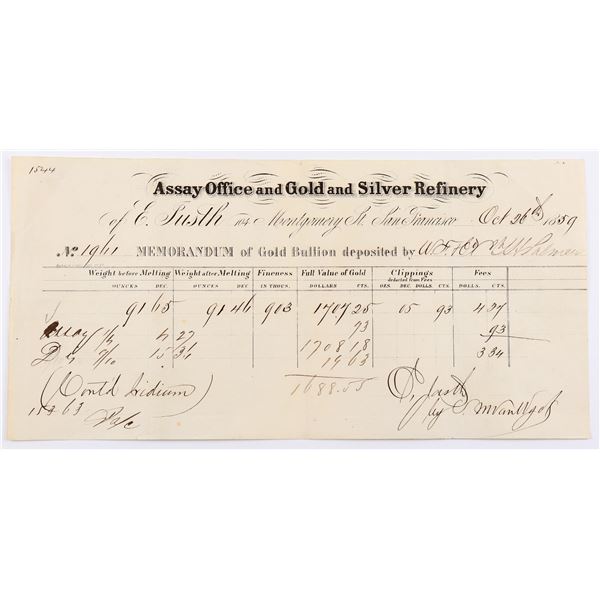 1544
Assay Office and Gold and Silver Refinery
of E. Justh 104 Montgomery St. San Francisco Oct 26th 1859
No. 1961 MEMORANDUM of Gold Bullion deposited by W. F. & Co
Weight before Melting Weight after Melting Fineness Full Value of Gold Clippings deducted from Fees Fees
OUNCES DEC OUNCES DEC IN THOUS. DOLLARS CTS. OZS. DEC. DOLLS. CTS. DOLLS. CTS.
91 65 91 46 903 1707 25 05 93 4 27
Assay 1/4 4 27 93 93
1708 18 3 34
15 36 19 63
(Contd Iridium) 1688.55 E. Justh
19 63 by